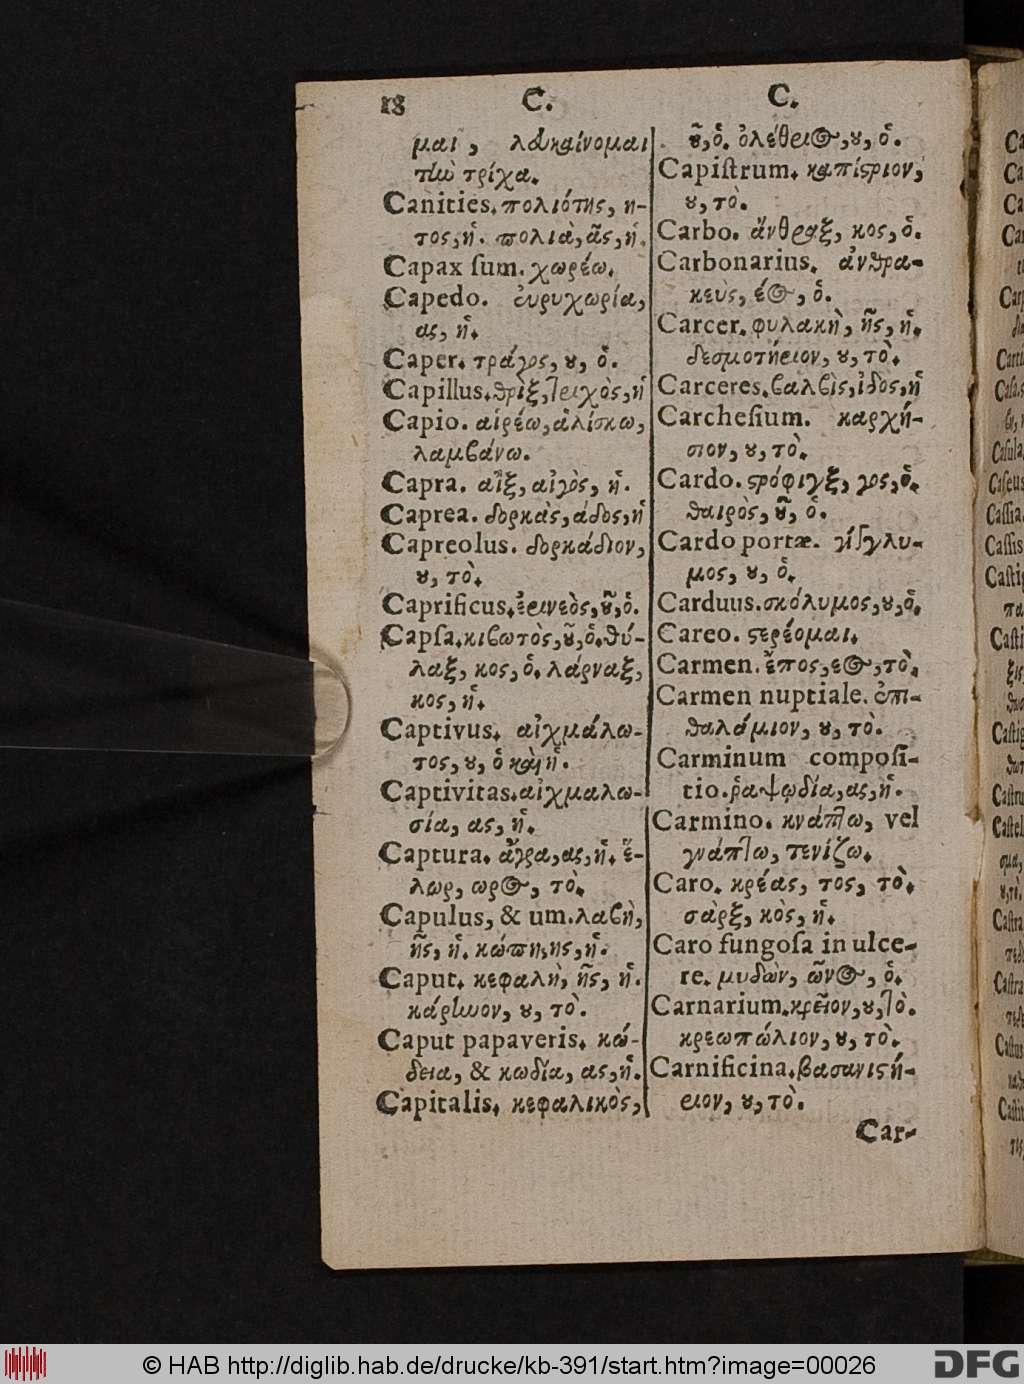 18 C. C.
μαι, λευκαίνομαι
τὴν τρίχα.
Canities. πολιότης, η-
τος, ἡ. πολιὰ, ᾶς, ἡ.
Capax ſum. χωρέω.
Capedo. εὐρυχωρία,
ας, ἡ.
Caper. τράγος, ου, ὁ.
Capillus. θρὶξ, τριχὸς, ἡ
Capio. αἱρέω, ἁλίσκω,
λαμβάνω.
Capra. αἲξ, αἰγὸς, ἡ.
Caprea. δορκὰς, άδος, ἡ
Capreolus. δορκάδιον,
ου, τὸ.
Caprificus. ἐρινεὸς, οῦ, ὁ.
Capſa. κιβωτὸς, οῦ, ὁ. θύ-
λαξ, κος, ὁ. λάρναξ,
κος, ἡ.
Captivus. αἰχμάλω-
τος, ου, ὁ καὶ ἡ.
Captivitas. αἰχμαλω-
σία, ας, ἡ.
Captura. ἄγρα, ας, ἡ. ἕ-
λωρ, ωρος, τὸ.
Capulus, & um. λαβὴ,
ῆς, ἡ. κώπη, ης, ἡ.
Caput. κεφαλὴ, ῆς, ἡ.
κάρηνον, ου, τὸ.
Caput papaveris. κώ-
δεια, & κωδία, ας, ἡ.
Capitalis. κεφαλικὸς,
οῦ, ὁ. ὀλέθριος, ου, ὁ.
Capiſtrum. καπίστριον,
ου, τὸ.
Carbo. ἄνθραξ, κος, ὁ.
Carbonarius. ἀνθρα-
κεὺς, έος, ὁ.
Carcer. φυλακὴ, ῆς, ἡ.
δεσμοτήριον, ου, τὸ.
Carceres. βαλβὶς, ίδος, ἡ
Carcheſium. καρχή-
σιον, ου, τὸ.
Cardo. στρόφιγξ, γος, ὁ.
θαιρὸς, οῦ, ὁ.
Cardo portæ. γίγγλυ-
μος, ου, ὁ.
Carduus. σκόλυμος, ου, ὁ.
Careo. στερέομαι.
Carmen. ἔπος, εος, τὸ.
Carmen nuptiale. ἐπι-
θαλάμιον, ου, τὸ.
Carminum compoſi-
tio. ῥαψῳδία, ας, ἡ.
Carmino. κνάπτω, vel
γνάπτω, τενίζω.
Caro. κρέας, τος, τὸ.
σὰρξ, κὸς, ἡ.
Caro fungoſa in ulce-
re. μυδὼν, ῶνος, ὁ.
Carnarium. κρεῖον, ου, τὸ.
κρεωπώλιον, ου, τὸ.
Carnificina. βασανιστή-
ριον, ου, τὸ.
Car-
© HAB http://diglib.hab.de/drucke/kb-391/start.htm?image=00026 DFG